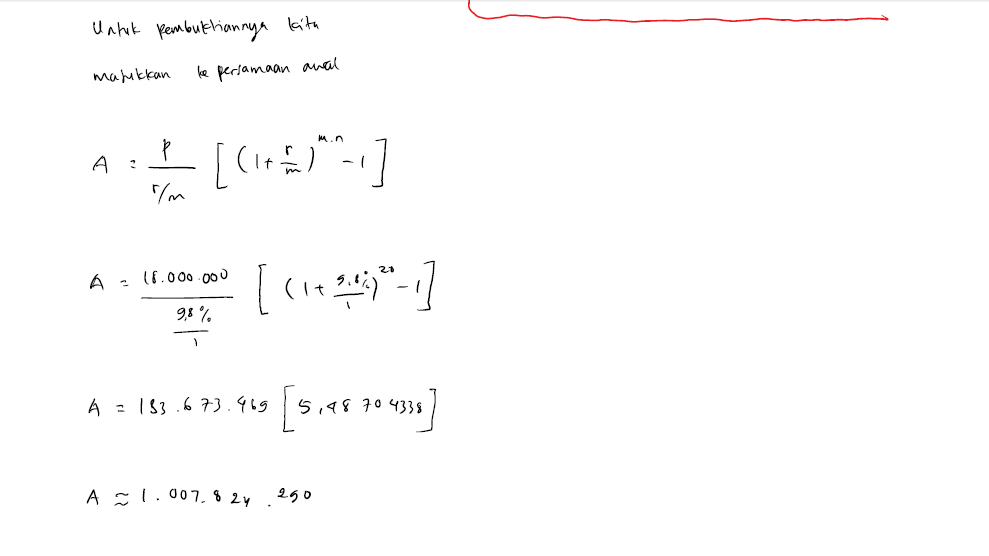 Untuk pembuktiannya kita
masukkan ke persamaan awal
A = P / r/m [ (1 + r/m)^m.n - 1 ]
A = 18.000.000 / 9,8% / 1 [ (1 + 9,8% / 1)^20 - 1 ]
A = 183.673.469 [ 5,48704338 ]
A ≈ 1.007.824.290